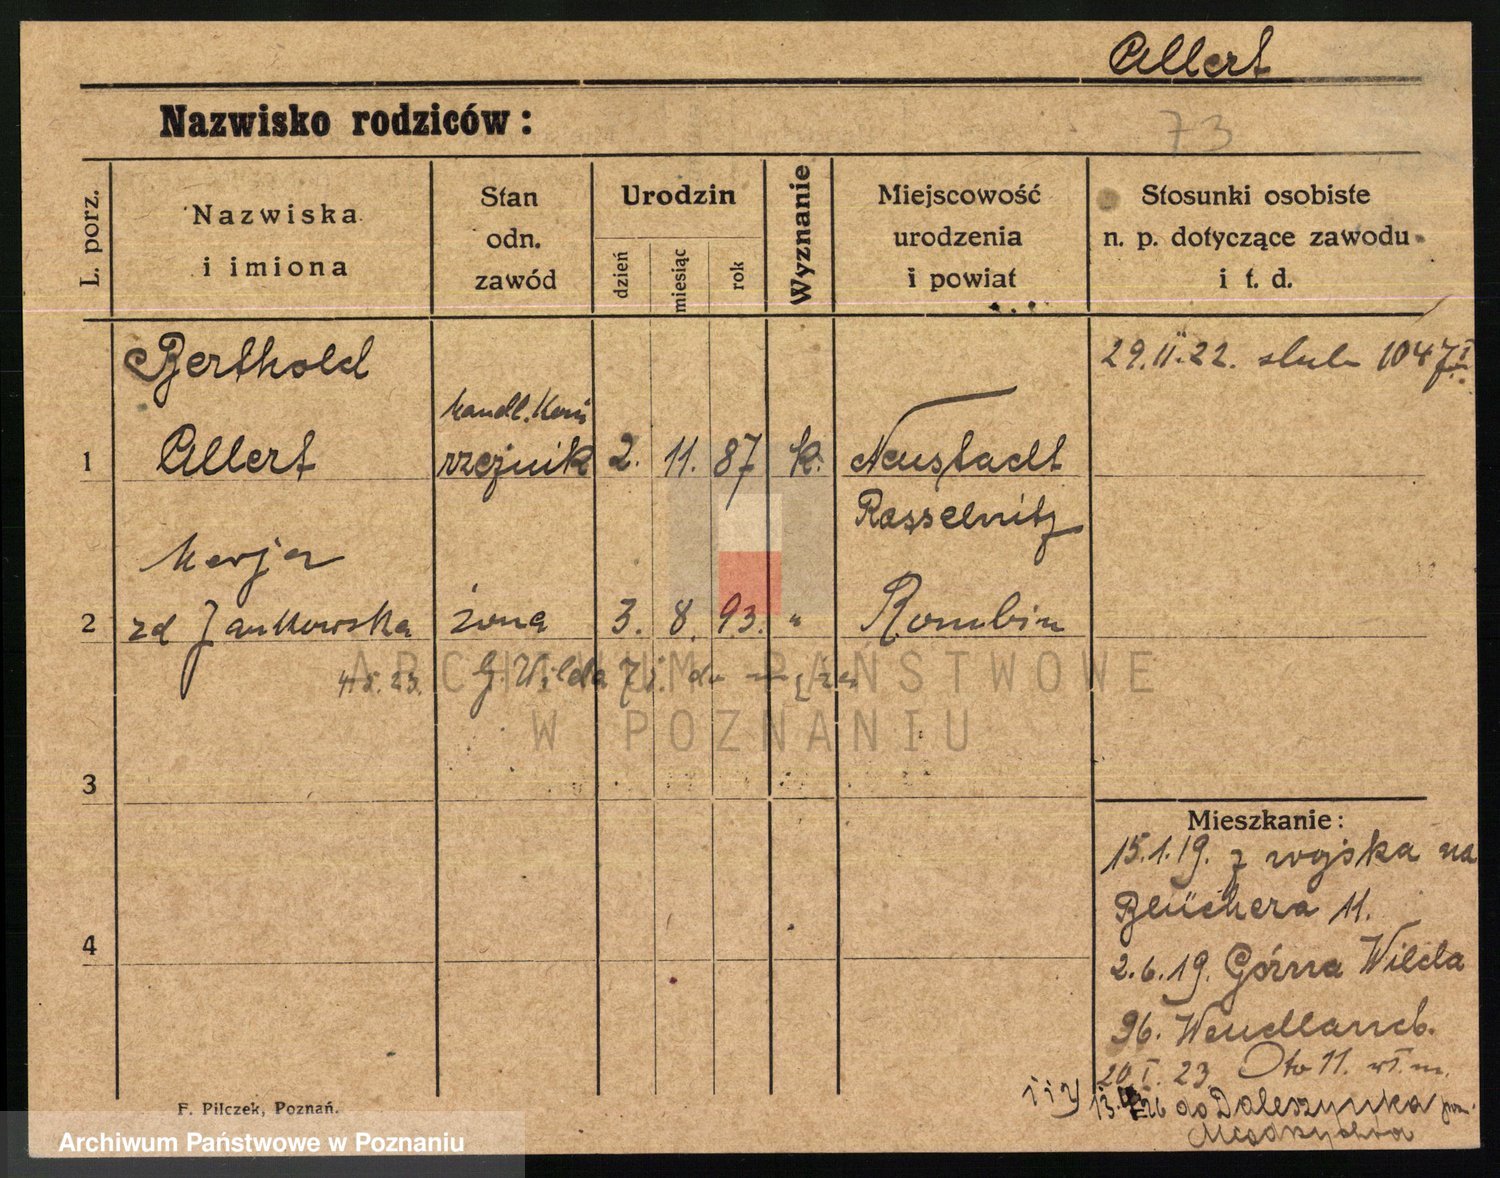 Allert
Nazwisko rodziców:
73
L. porz.
Nazwiska
i imiona
Stan
odn.
zawód
Urodzin
dzień
miesiąc
rok
Wyznanie
Miejscowość
urodzenia
i powiat
Stosunki osobiste
n. p. dotyczące zawodu
i t. d.
Berthold
29.II.22. slub 1047
handl. Koni
1 Allert rzeznik 2. 11. 87 k. Neustadt
Rasselnitz
Marja
2 zd Jankowska żona 3. 8. 93. " Rombin
G. Wilda
3
Mieszkanie:
15.1.19. z wojska na
Blüchera 11.
4
2.6.19. Górna Wilda
96. Wendland.
20.I.23 Oto 11.
13. 26 do Daleszynka
F. Pilczek, Poznań.
ARCHIWUM PAŃSTWOWE
W POZNANIU
Archiwum Państwowe w Poznaniu